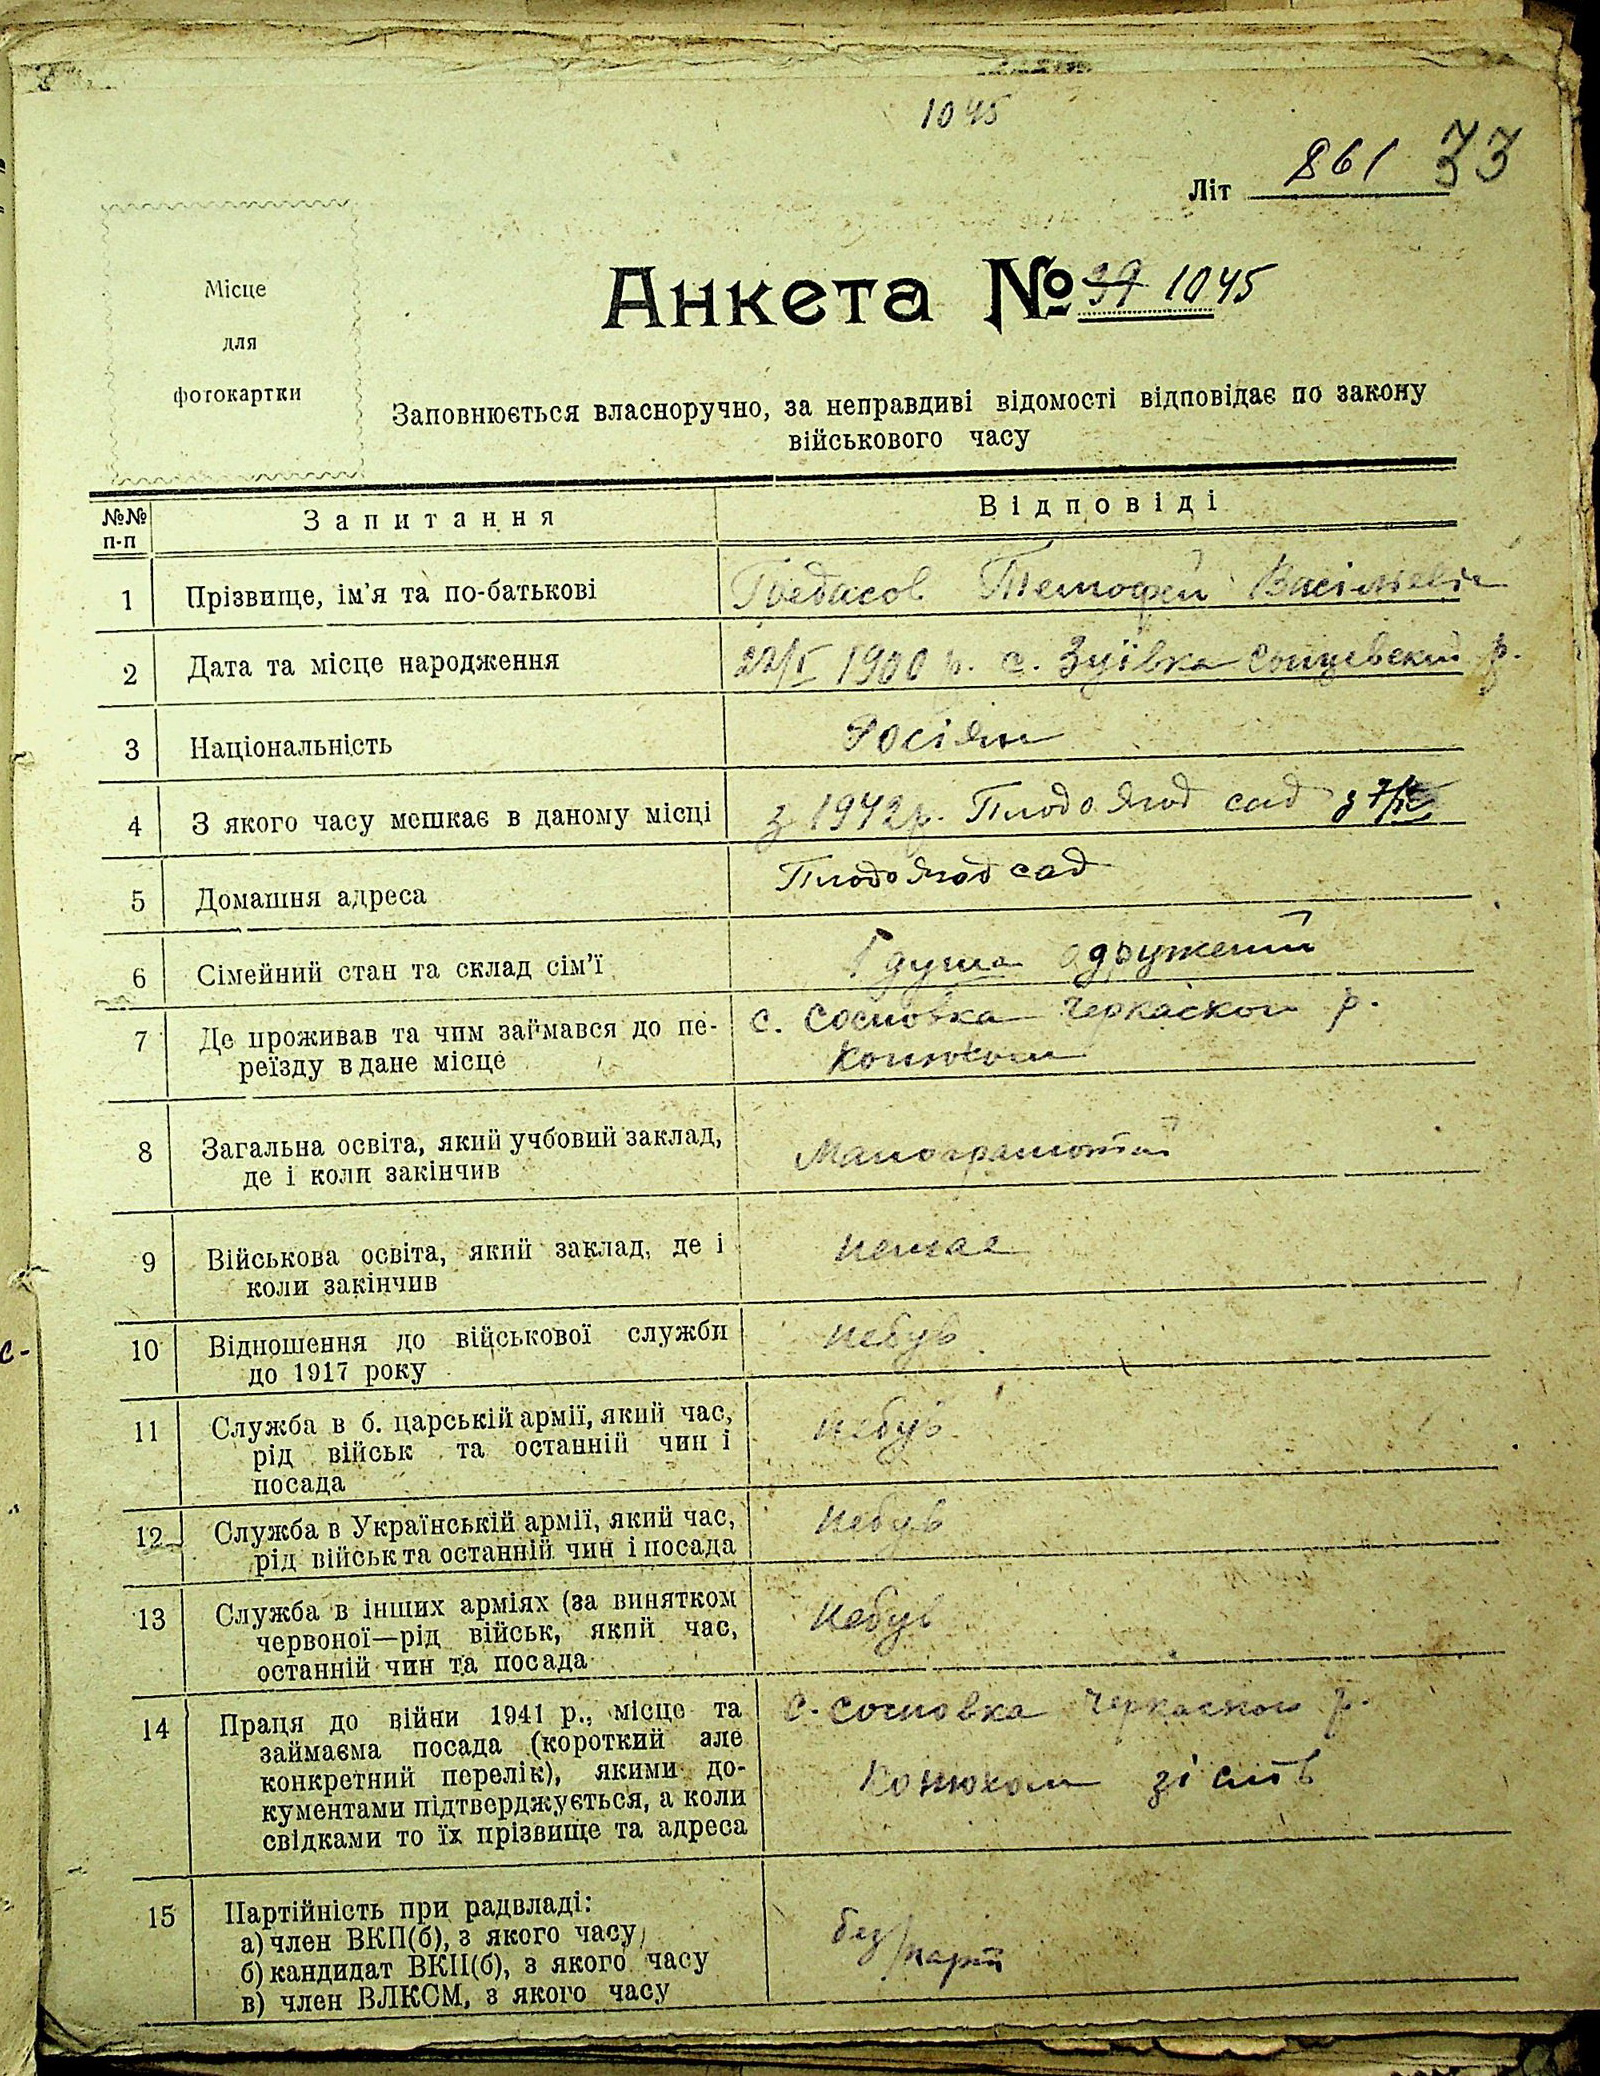 1045
Літ 861 33
Місце
для
фотокартки
Анкета № 39 1045
Заповнюється власноручно, за неправдиві відомості відповідає по закону
військового часу
№№ п-п Запитання Відповіді
1 Прізвище, ім'я та по-батькові Темофей
2 Дата та місце народження 1900 р. с. Зуївка р.
3 Національність Росіян
4 З якого часу мешкає в даному місці з 1942 р. Плодо Ягод сад з
5 Домашня адреса Плодо Ягод сад
6 Сімейний стан та склад сім'ї душа одружений
7 Де проживав та чим займався до пе- с. Сосновка Черкаской р.
реїзду в дане місце Конюхом
8 Загальна освіта, який учбовий заклад,
де і коли закінчив Малограмотний
9 Військова освіта, який заклад, де і немає
коли закінчив
10 Відношення до військової служби небув
до 1917 року
11 Служба в б. царській армії, який час, небув
рід військ та останній чин і
посада
12 Служба в Українській армії, який час, небув
рід військ та останній чин і посада
13 Служба в інших арміях (за винятком небув
червоної—рід військ, який час,
останній чин та посада
14 Праця до війни 1941 р., місце та с. Сосновка Черкаской р.
займаєма посада (короткий але
конкретний перелік), якими до- Конюхом
кументами підтверджується, а коли
свідками то їх прізвище та адреса
15 Партійність при радвладі:
а) член ВКП(б), з якого часу без/парт
б) кандидат ВКП(б), з якого часу
в) член ВЛКСМ, з якого часу